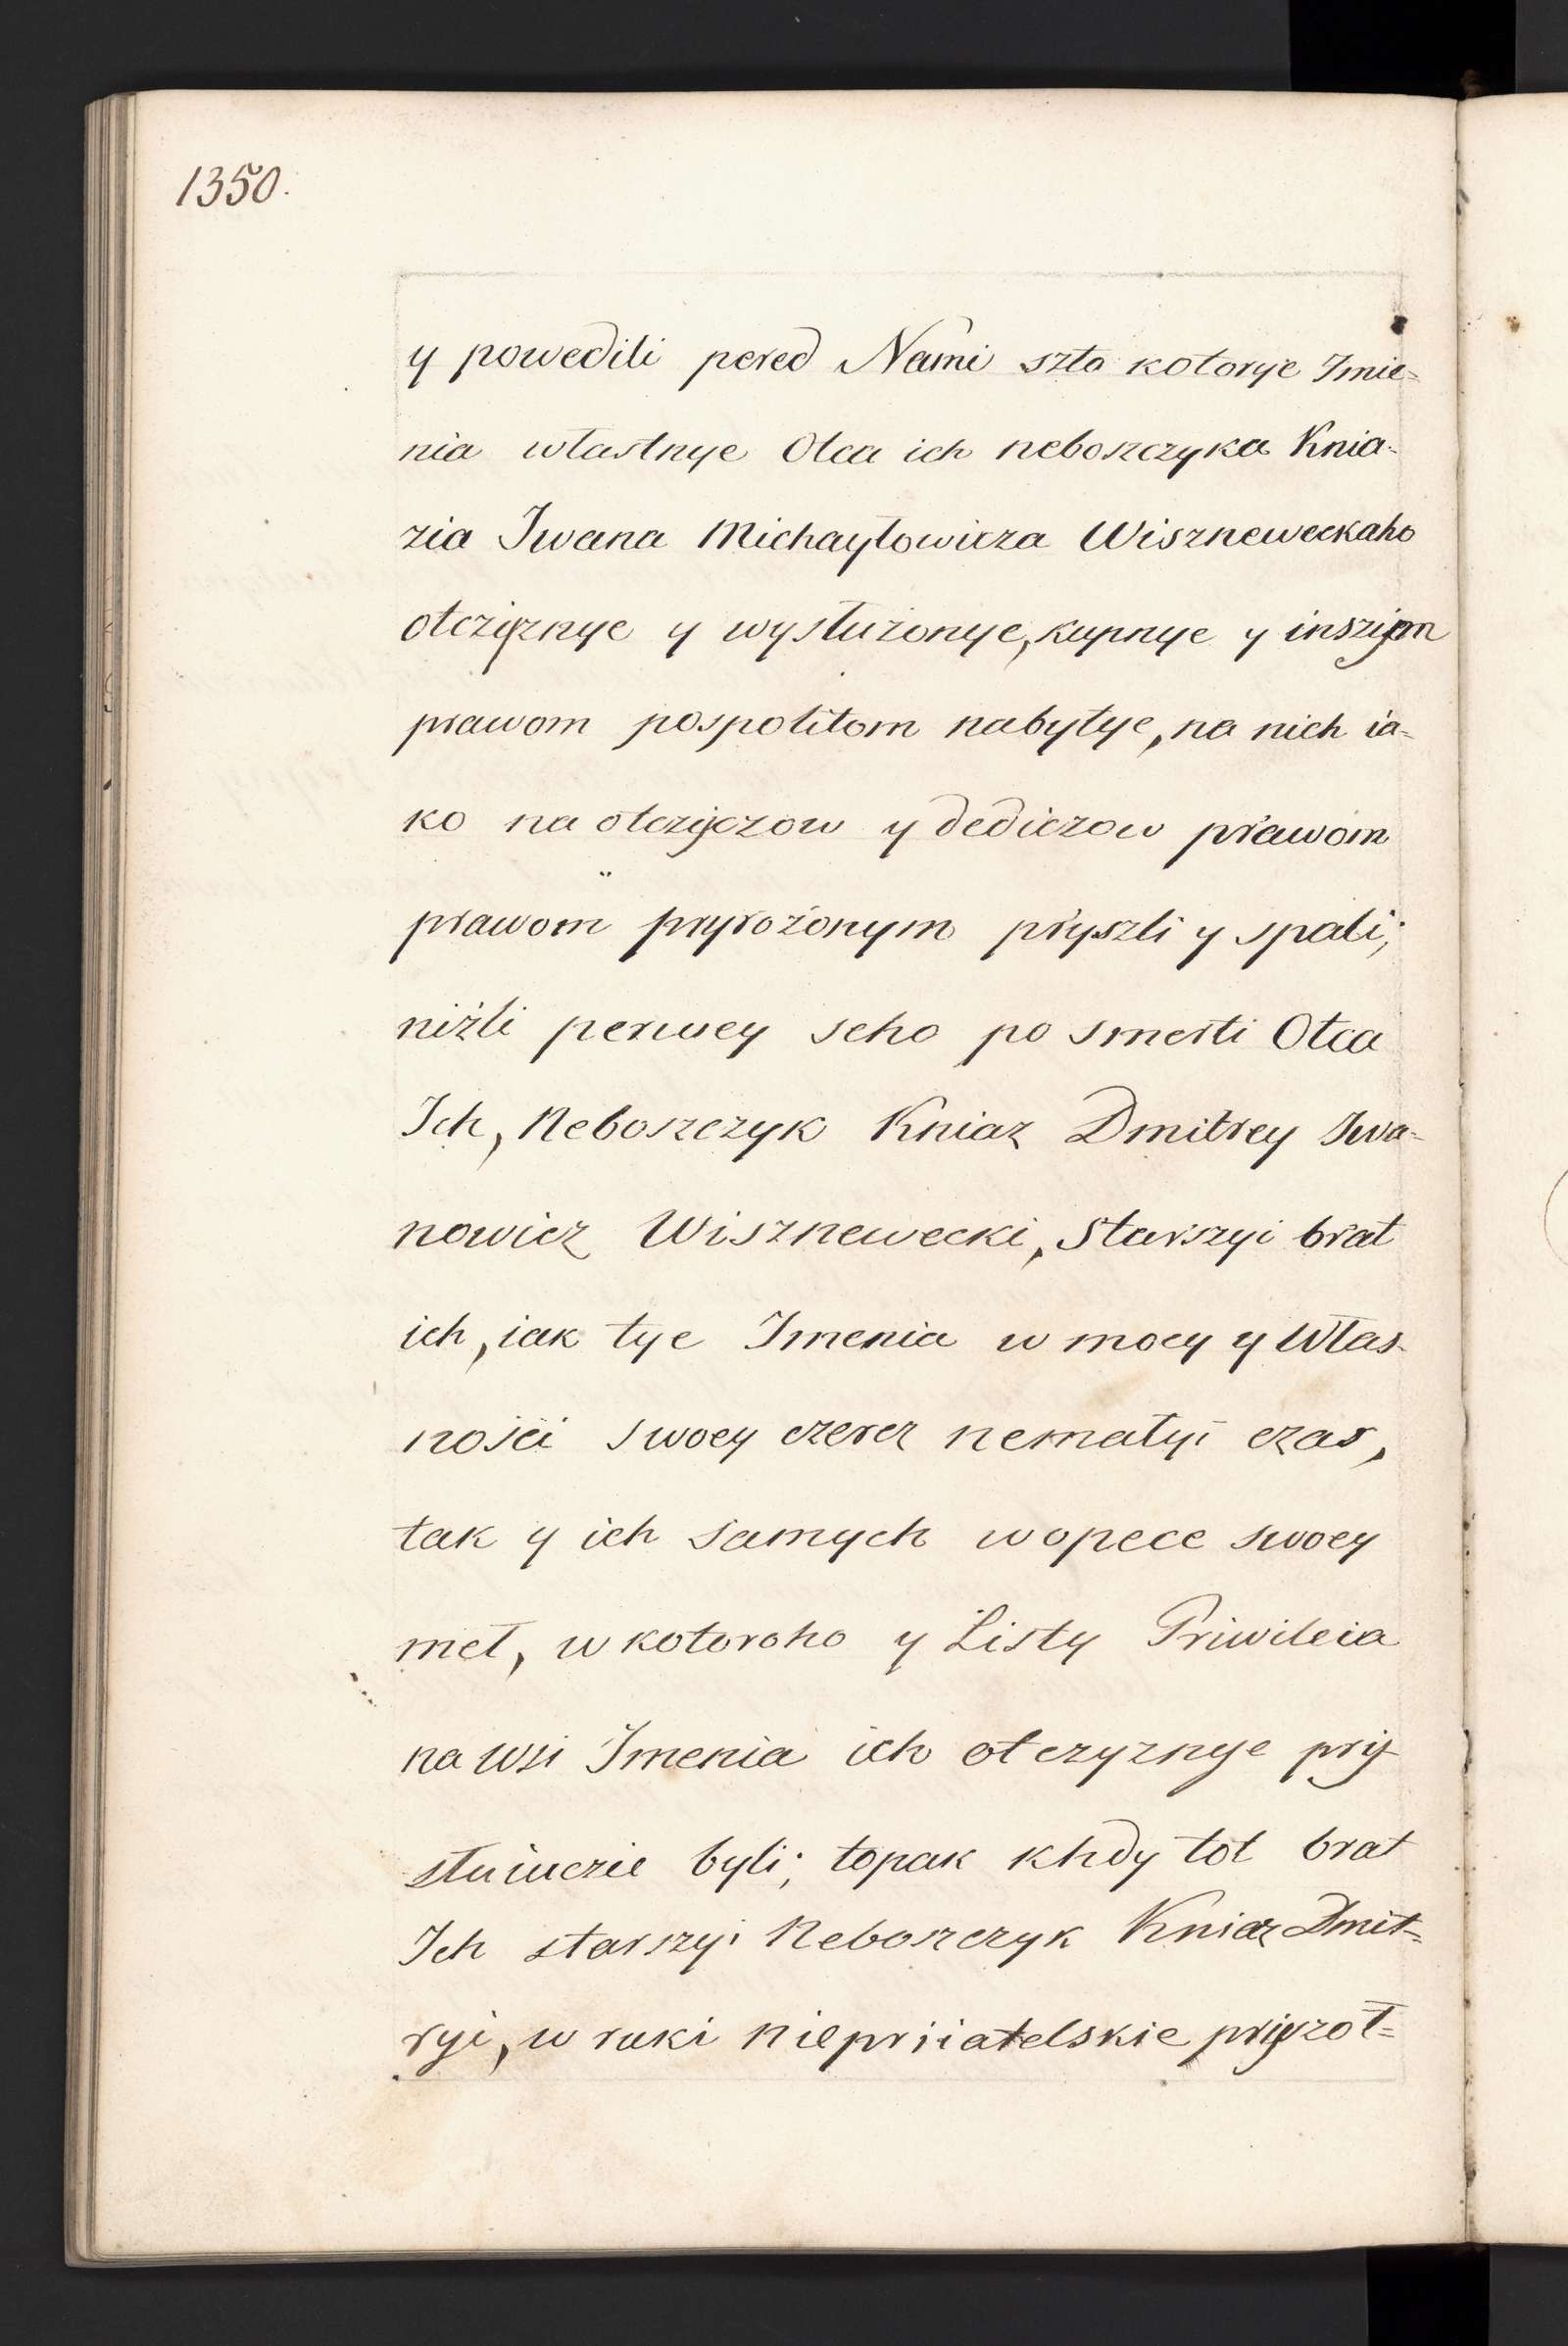 1350.
y powedili pered Nami szto kotorye Imie=
nia własnye Otca ich neboszczyka Knia-
zia Iwana Michayłowicza Wiszneweckaho
otczyznye y wysłużonye, kupnye y inszym
prawom pospolitom nabytye, na nich ia=
ko na otczyczow y dediczow prawom
prawom pryrożonym pryszli y spali;
niżli perwey seho po smerti Otca
Ich, Neboszczyk Kniaz Dmitrey Iwa-
nowicz Wisznewecki, Starszyi brat
ich, iak tye Imenia w mocy y Włas-
nosci swoey czerez nemałyi czas,
tak y ich samych w opece swoey
meł, w kotoroho y Listy Priwileia
na wsi Imenia ich otczyznye pry
słuiuczie byli; topak khdy tot brat
Ich starszyi Neboszczyk Kniaz Dmit=
ryi, w ruki niepriiatelskie pryszoł=